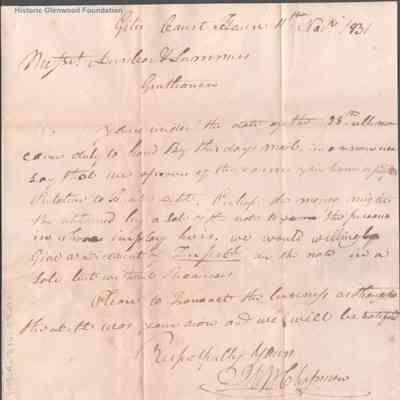 Historic Glenwood Foundation
Giles Court House 11th Novr 1831
Messrs
Gentlemen
Yours under the date of the 28th ultimo
came duly to hand By this days mail, in answer we
say that we approve of the course you have
Relation to the debt. Perhaps the money might
be obtained by a sale of the note to some
in whose employ he is, we would willingly
Give a discount of on the note in a
sale but without
Please to transact the business as though
the debt was your own and we will be satisfied
Respectfully Yours
Chapman